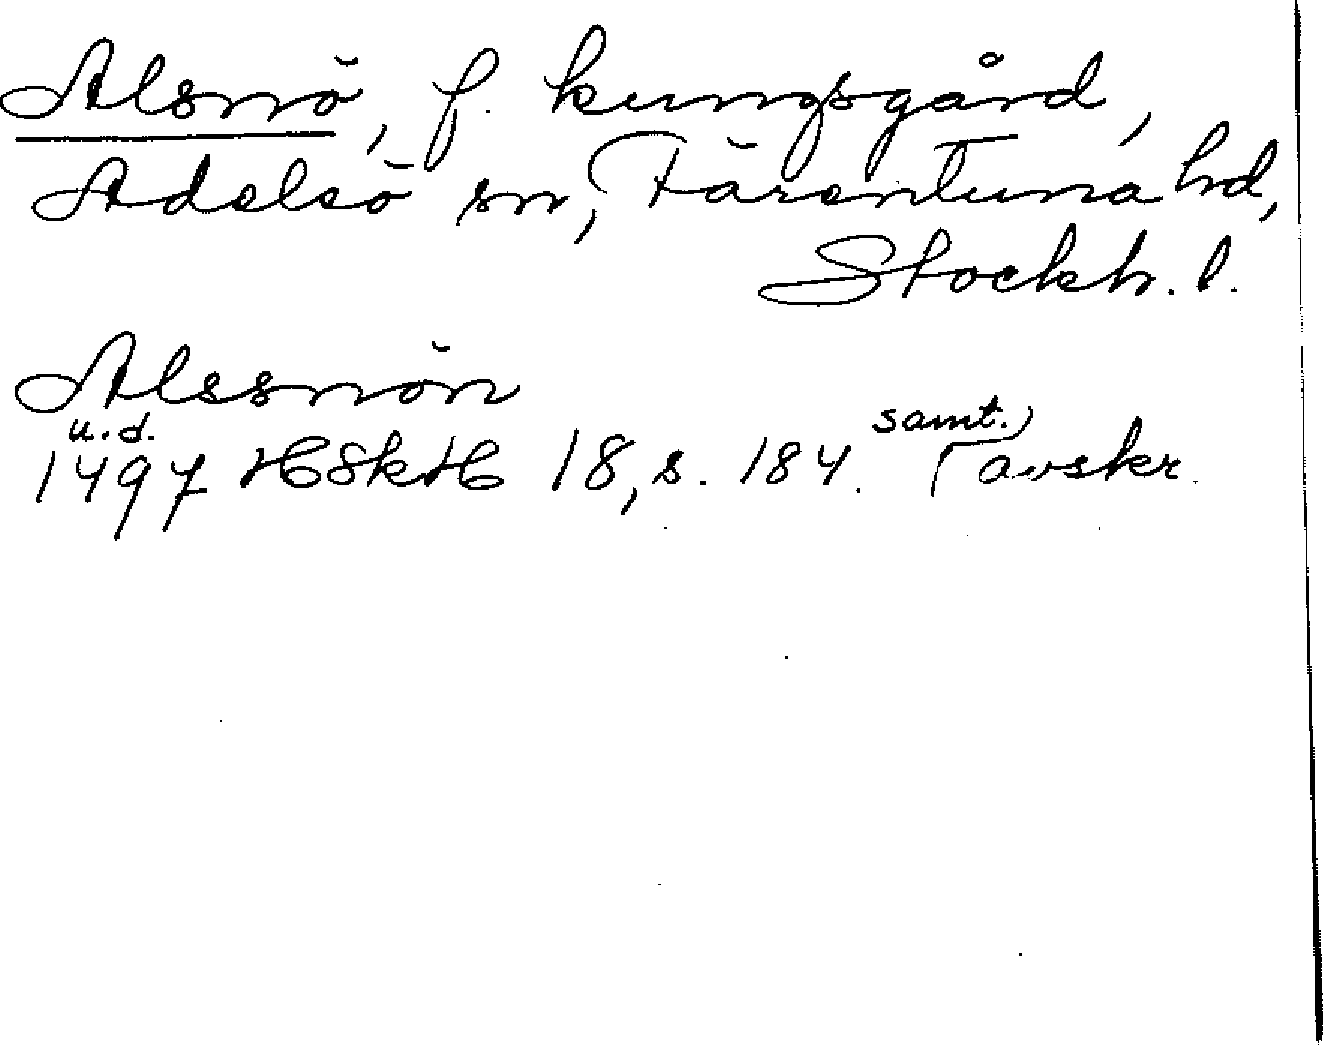 Alsnö, f. kungsgård,
Adelsö sn, Färentuna hd,
Stockh. l.
Alssnön
u.d.
1497 HSkH 18, s. 184. samt.) avskr.